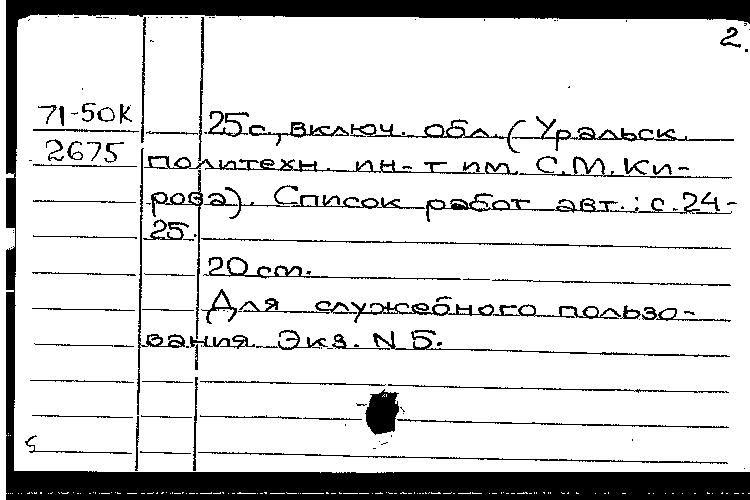 2.
71-50К
25с., включ. обл. (Уральск.
2675
политехн. ин-т им. С.М.Ки-
рова). Список работ авт.: с.24-
25.
20 ст.
Для служебного пользо-
вания. Экз. N 5.